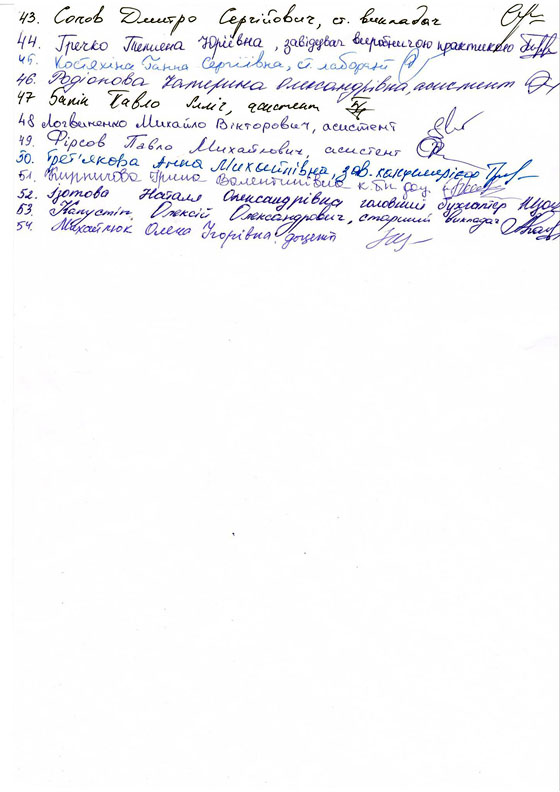 43. Сопов Дмитро Сергійович, ст. викладач
44. Гречко Тетяна Юріївна, завідувач виробничою практикою
45. Костяхіна Ганна Сергіївна, ст. лаборант
46. Родіонова Катерина Олександрівна, асистент
47 Бапін Павло Ілліч, асистент
48 Логвиненко Михайло Вікторович, асистент
49. Фірсов Павло Михайлович, асистент
50. Трет'якова Анна Михайлівна, зав. канцелярією
51. Кирпичова Ірина Валентинівна к.б.н доц.
52. Ізотова Наталя Олександрівна головний бухгалтер
53. Капустін Олексій Олександрович, старший викладач
54. Михайлюк Олена Ігорівна. доцент